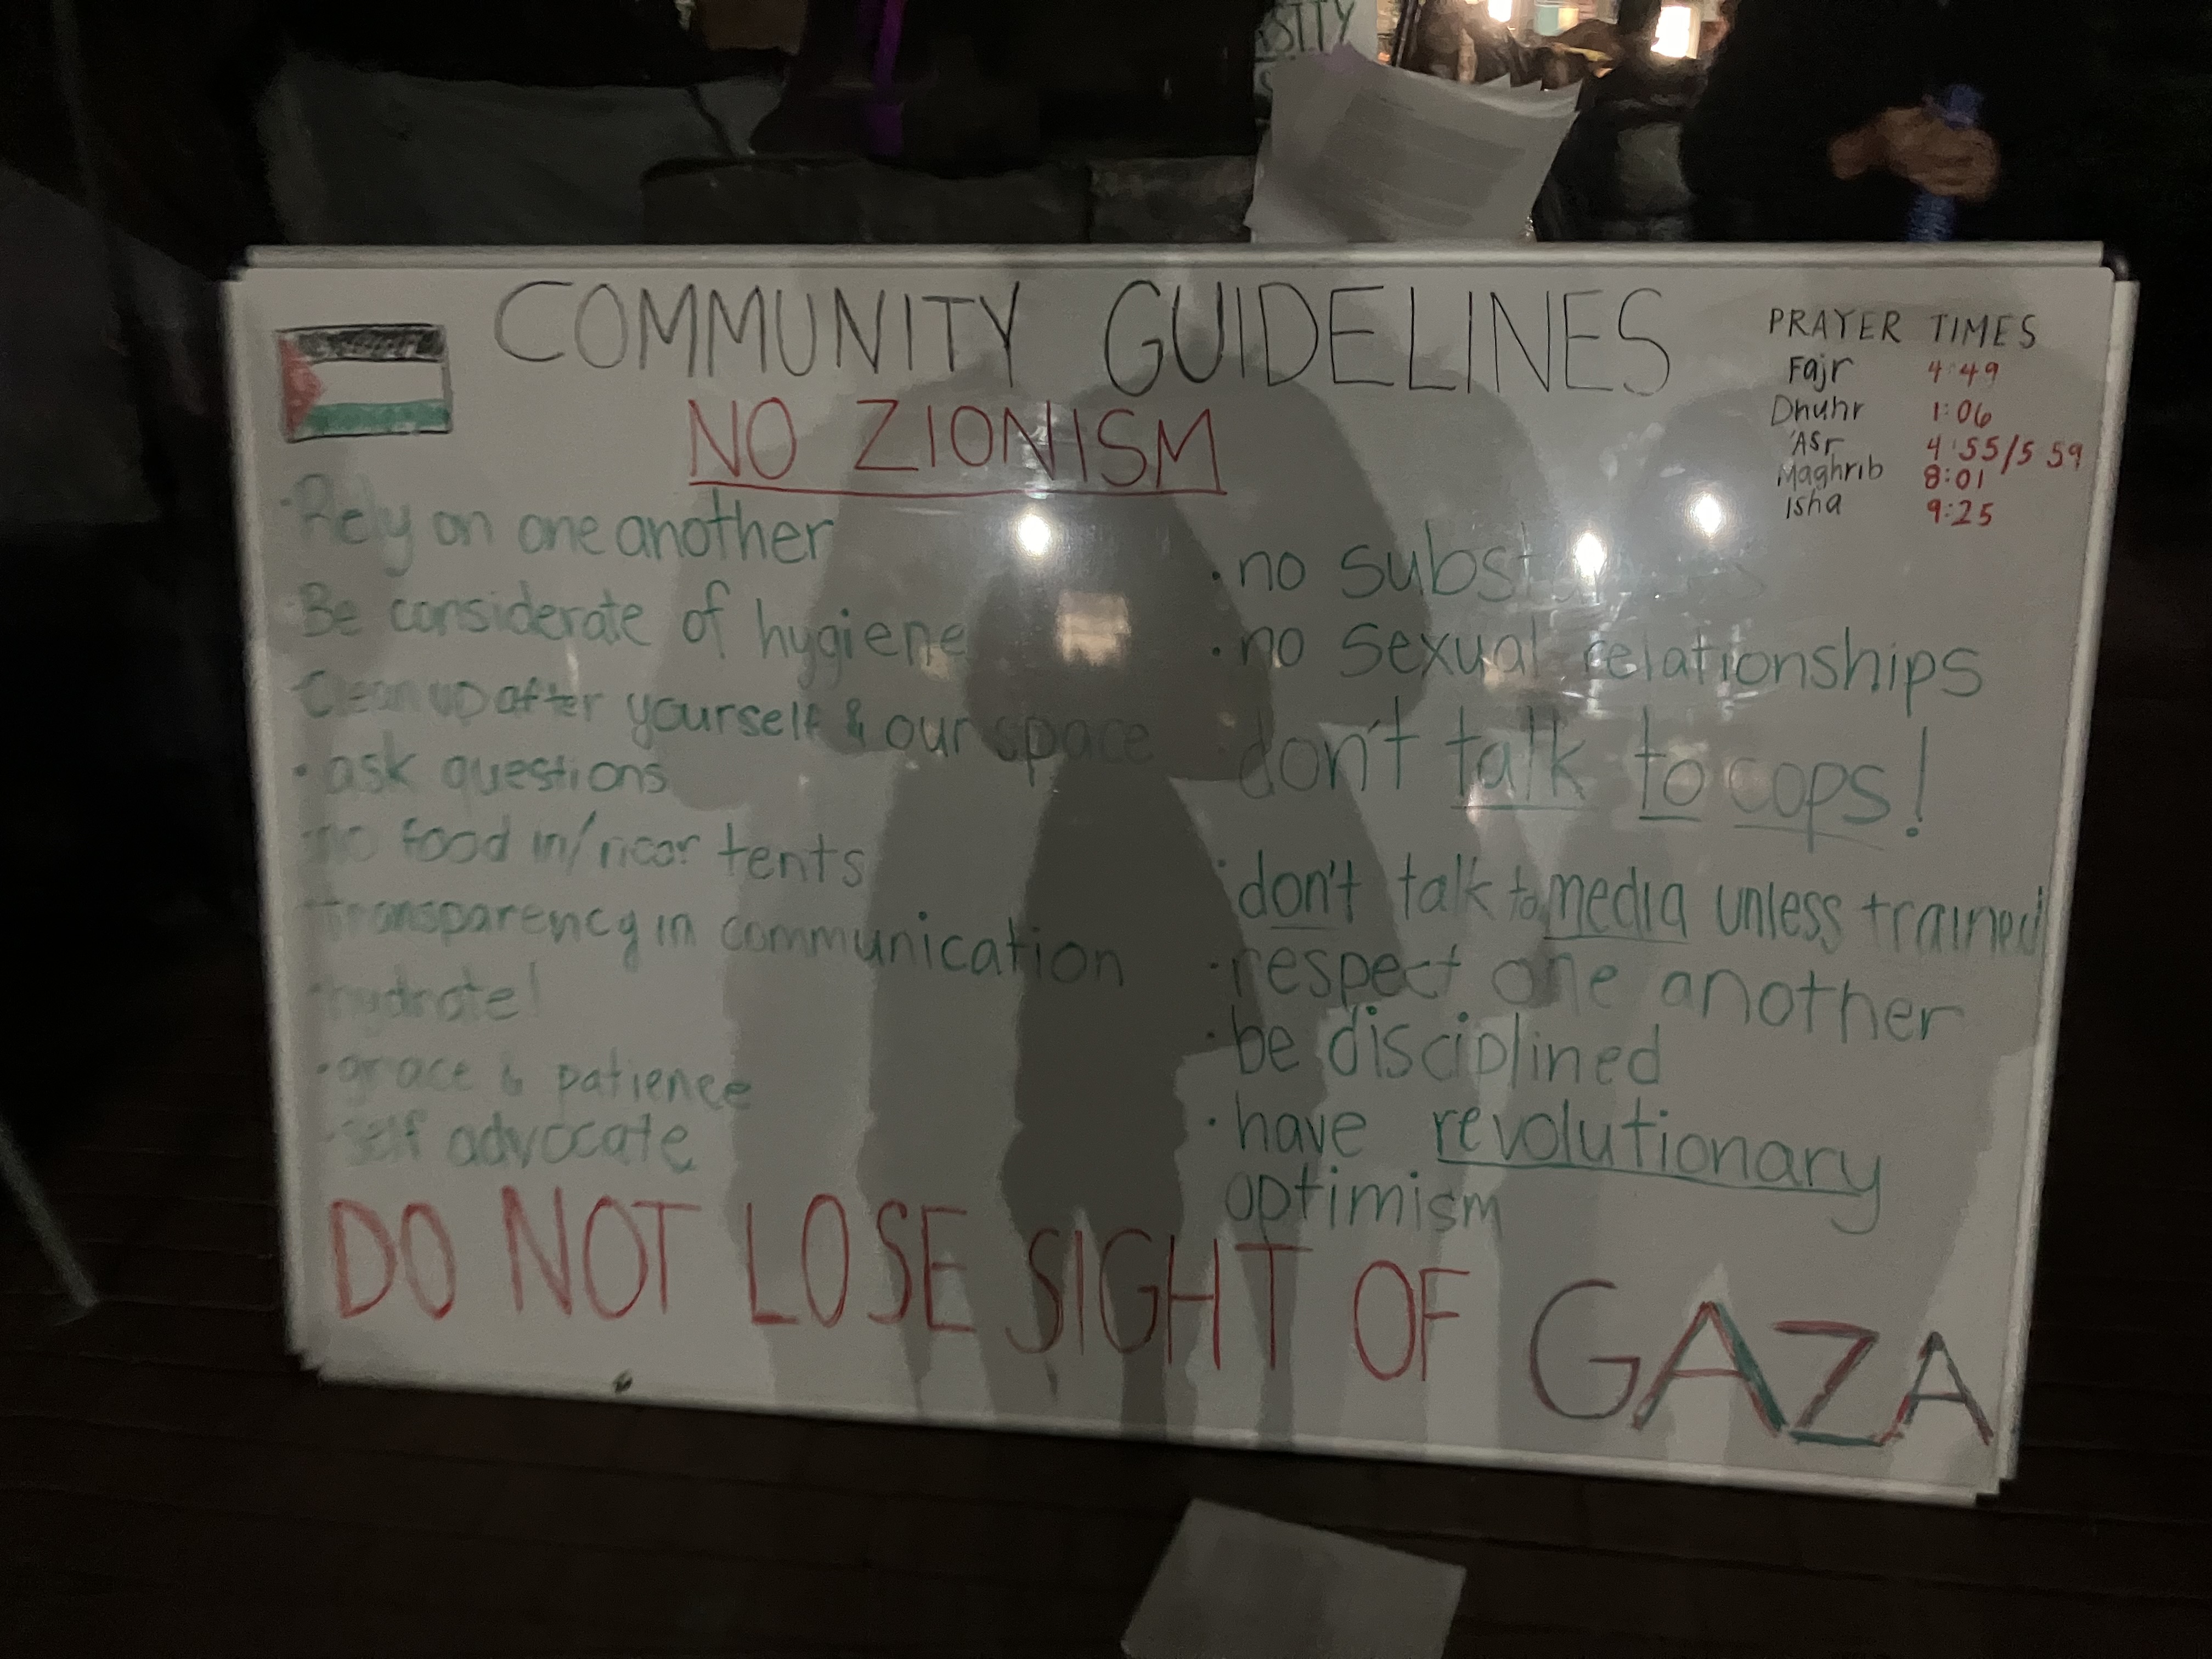 SITY
COMMUNITY GUIDELINES
NO ZIONISM
PRAYER TIMES
Fajr 4:49
Dhuhr 1:06
'Asr 4:55/5 59
Maghrib 8:01
Isha 9:25
·Rely on one another
Be considerate of hygiene
Clean up after yourself & our space
· ask questions
no food in/near tents
transparency in communication
·hydrate!
·grace & patience
·self advocate
·no
·no sexual relationships
don't talk to cops!
·don't talk to media unless trained
·respect one another
·be disciplined
·have revolutionary
optimism
DO NOT LOSE SIGHT OF GAZA